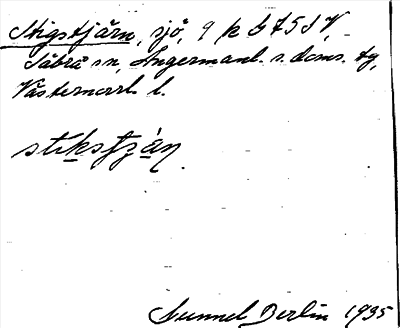 Stigstjärn, sjö, 9 k b 7 5 S V,
Säbrå sn, Ångermanl. s. doms. tg,
Västernorrl. l.
stikstjan
Gunnel Derlin 1935